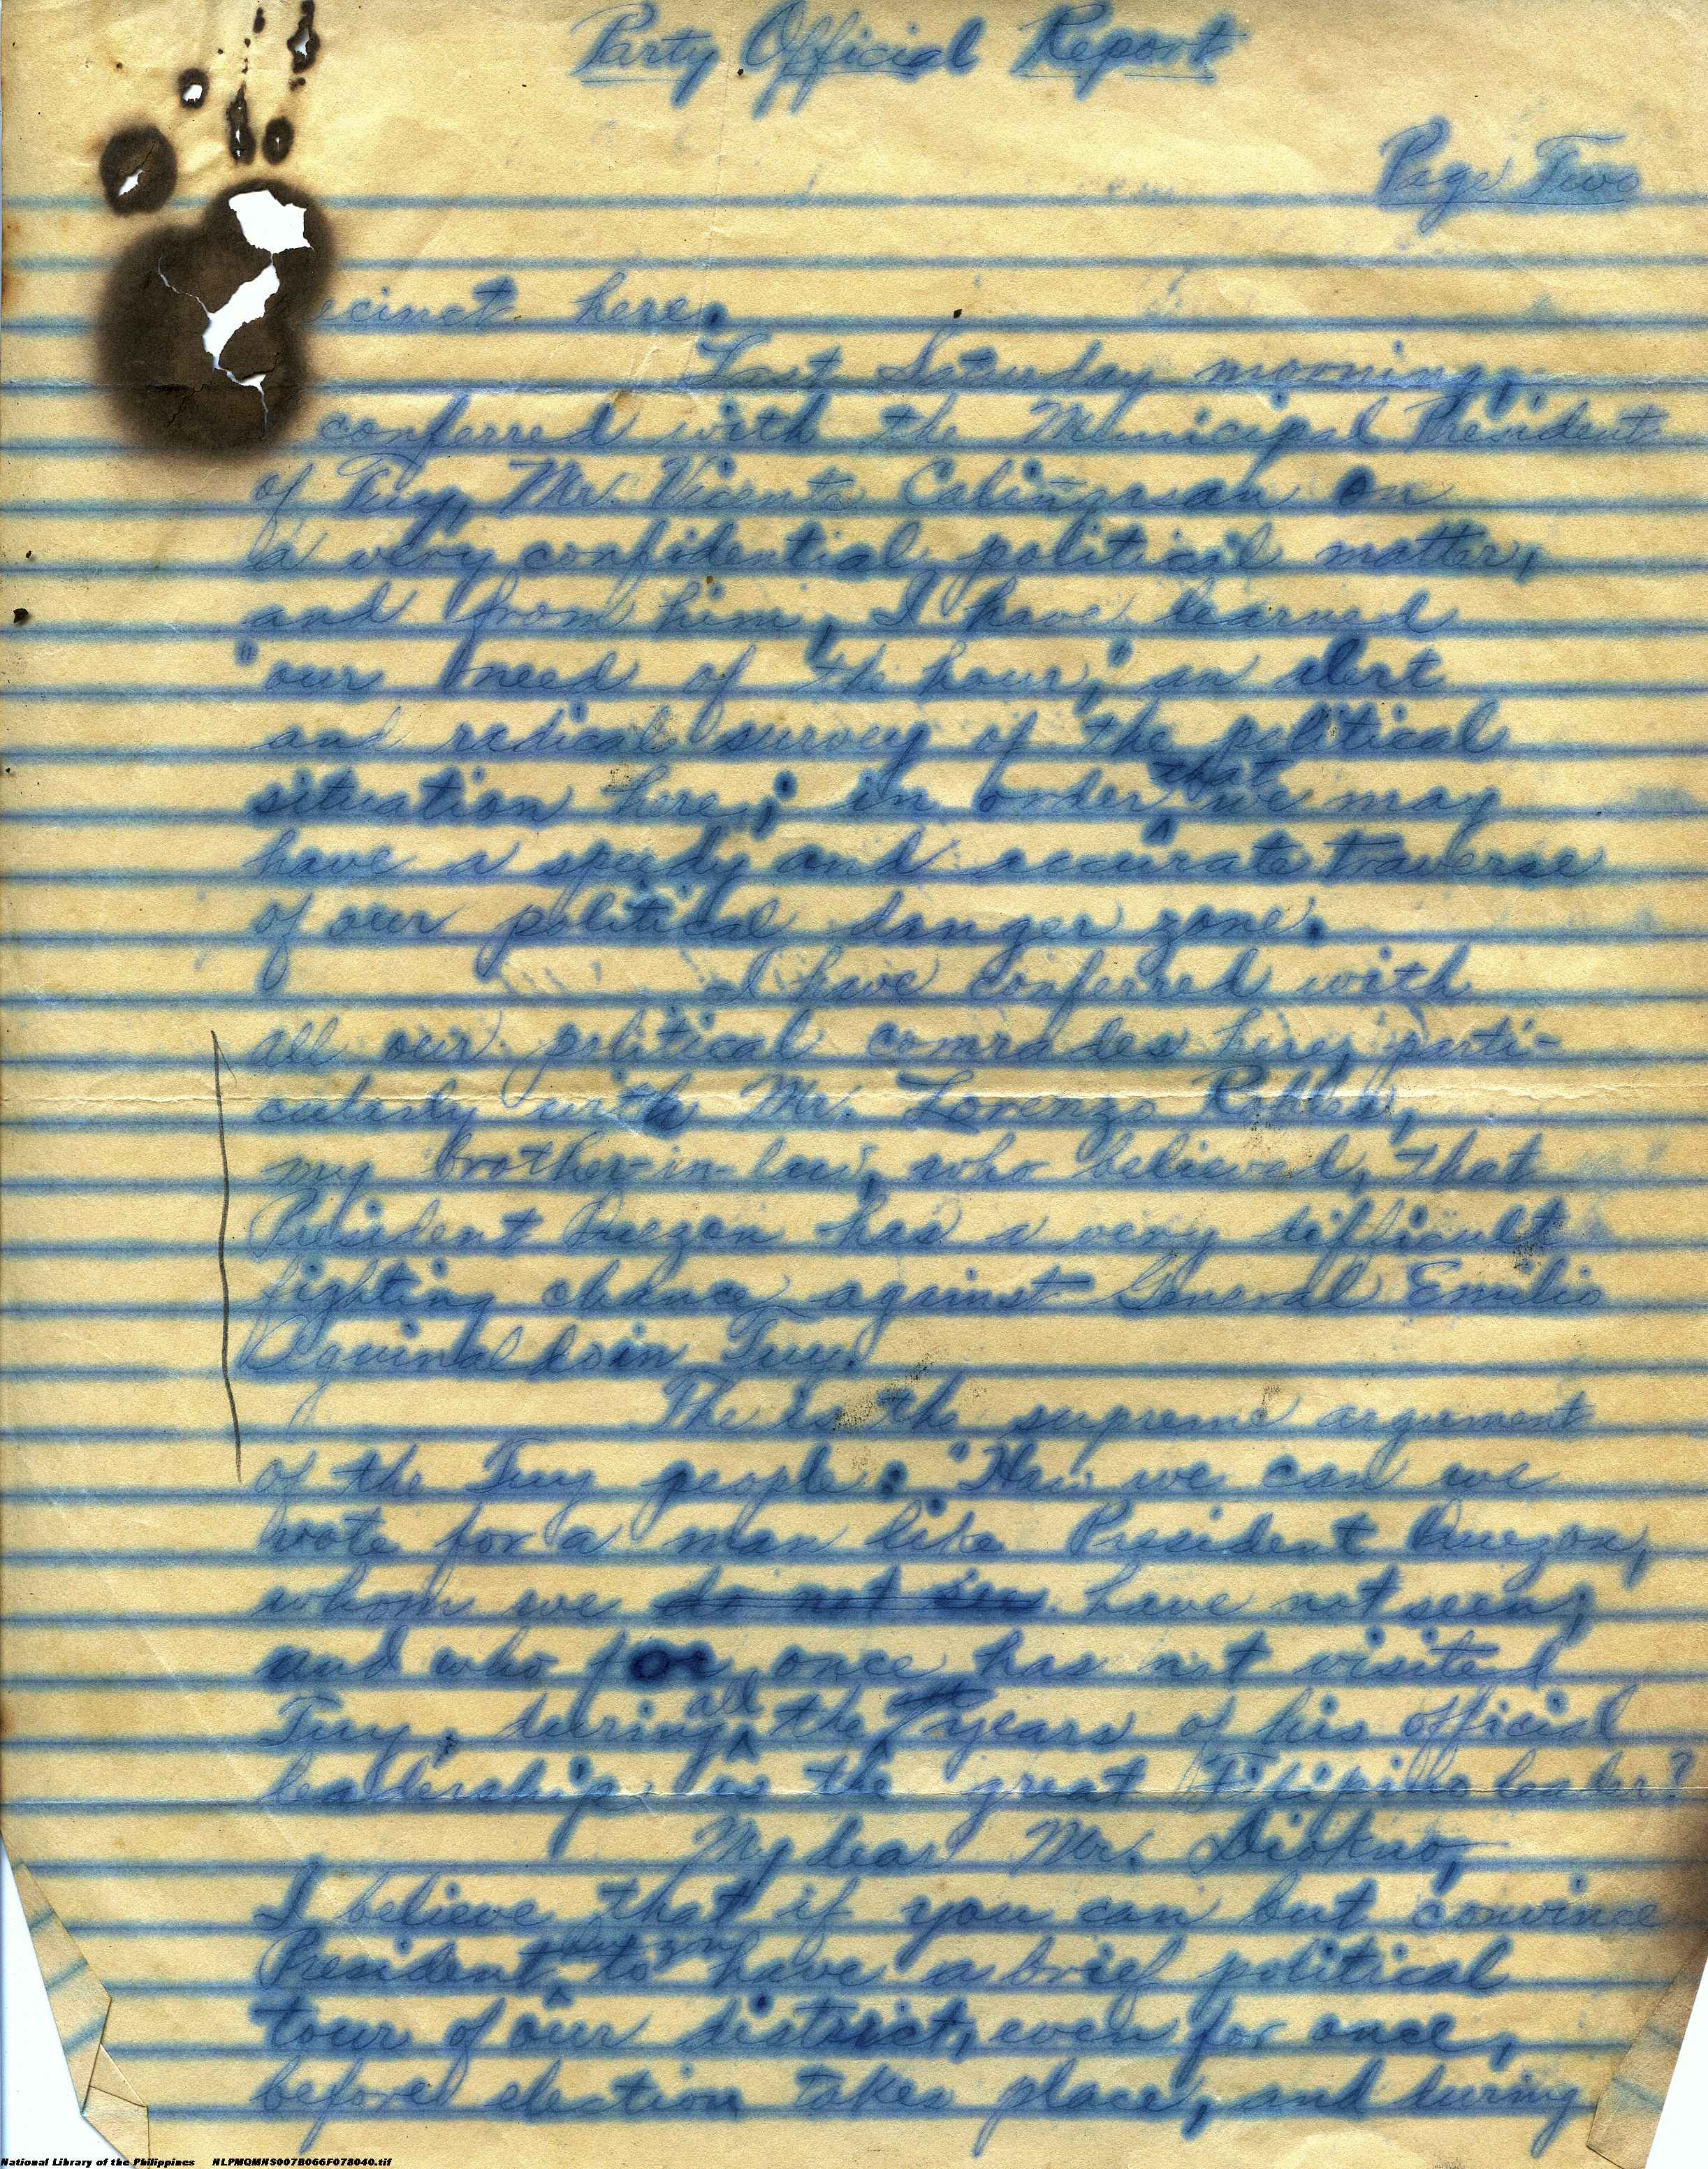 Party Official Report
Page Two
ecinct here.
Last Saturday morning,
conferred with the Municipal President
of Tuy, Mr. Vicente Caliñgasan on
a very confidential political matter,
and from him, I have learned
"our need of the hour," an alert
and radical survey of the political
situation here, in order that we may
have a speedy and accurate traverse
of our political danger zone.
I have conferred with
all our political comrades here, parti-
cularly with Mr. Lorenzo Robles,
my brother-in-law, who believed, that
President Quezon has a very difficult
fighting chance against General Emilio
Aguinaldo in Tuy.
The is the supreme argument
of the Tuy people: "How we can we
vote for a man like President Quezon,
whom we do not see have not seen,
and who for once has not visited
Tuy, during all the years of his official
leadership as the great Filipino leader?
My dear Mr. Diokno,
I believe that if you can but convince
President Quezon to have a brief political
tour of our district, even for once,
before election takes place, and during
National Library of the Philippines NLPMQMNS007B066F078040.tif